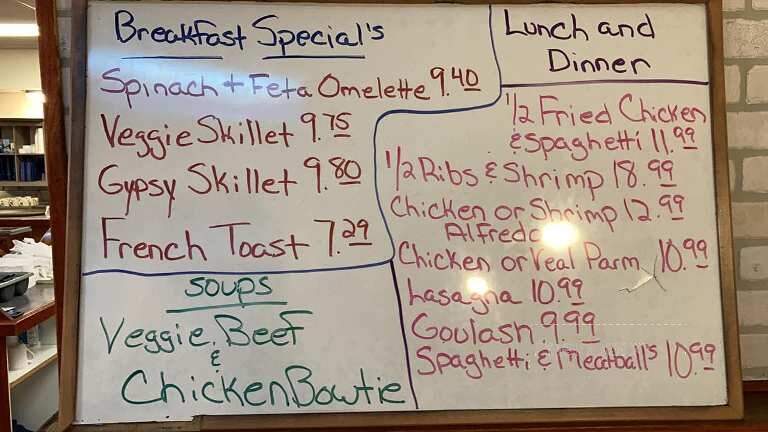 Breakfast Special's
Spinach + Feta Omelette 9.40
Veggie Skillet 9.75
Gypsy Skillet 9.80
French Toast 7.29
Soups
Veggie Beef
&
Chicken Bowtie
Lunch and
Dinner
1/2 Fried Chicken
& Spaghetti 11.99
1/2 Ribs & Shrimp 18.99
Chicken or Shrimp 12.99
Alfredo
Chicken or Veal Parm 10.99
Lasagna 10.99
Goulash 9.99
Spaghetti & Meatball's 10.99